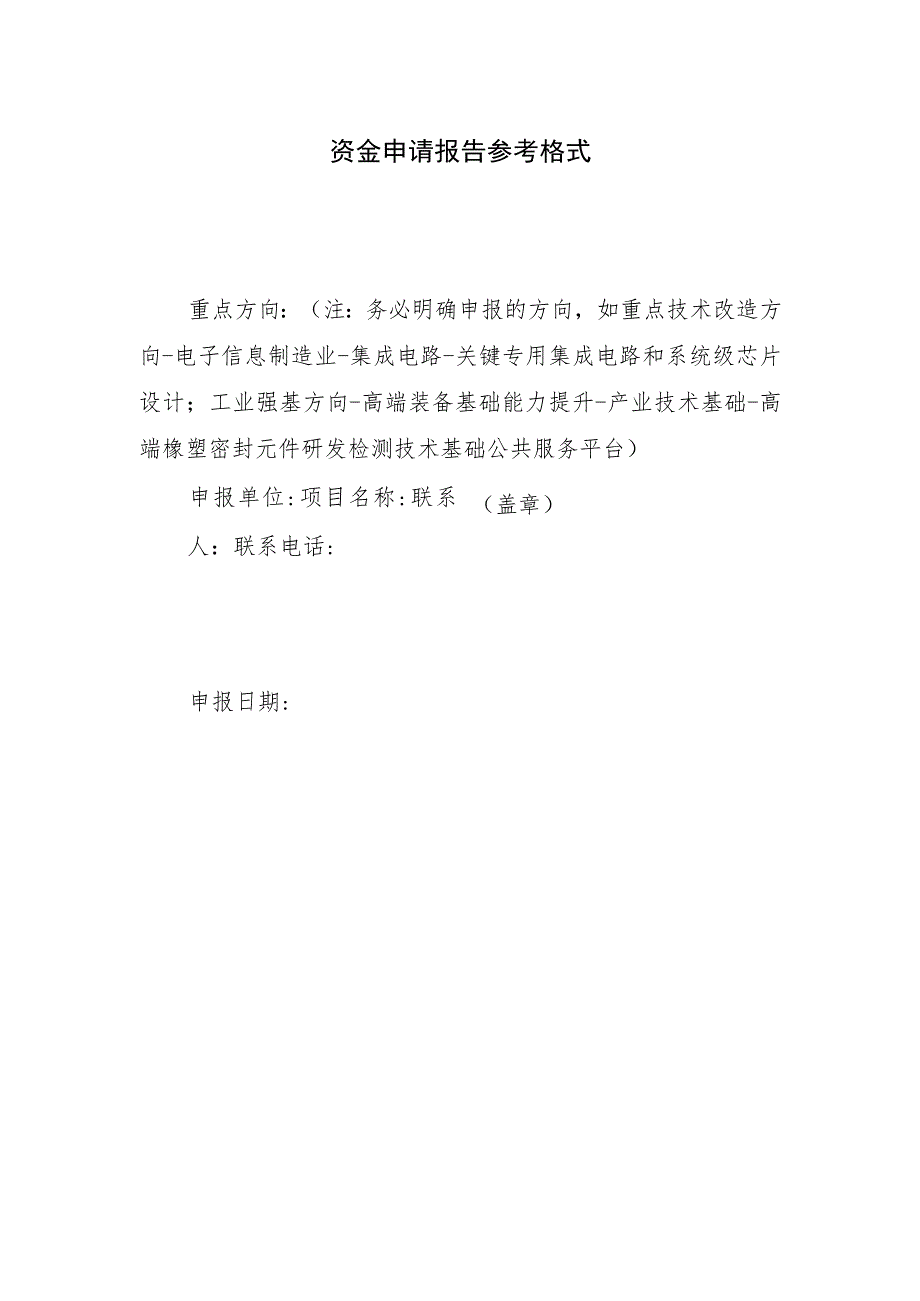 资金申请报告参考格式
重点方向：（注：务必明确申报的方向，如重点技术改造方
向-电子信息制造业-集成电路-关键专用集成电路和系统级芯片
设计；工业强基方向-高端装备基础能力提升-产业技术基础-高
端橡塑密封元件研发检测技术基础公共服务平台）
申报单位:项目名称:联系 （盖章）
人：联系电话:
申报日期: